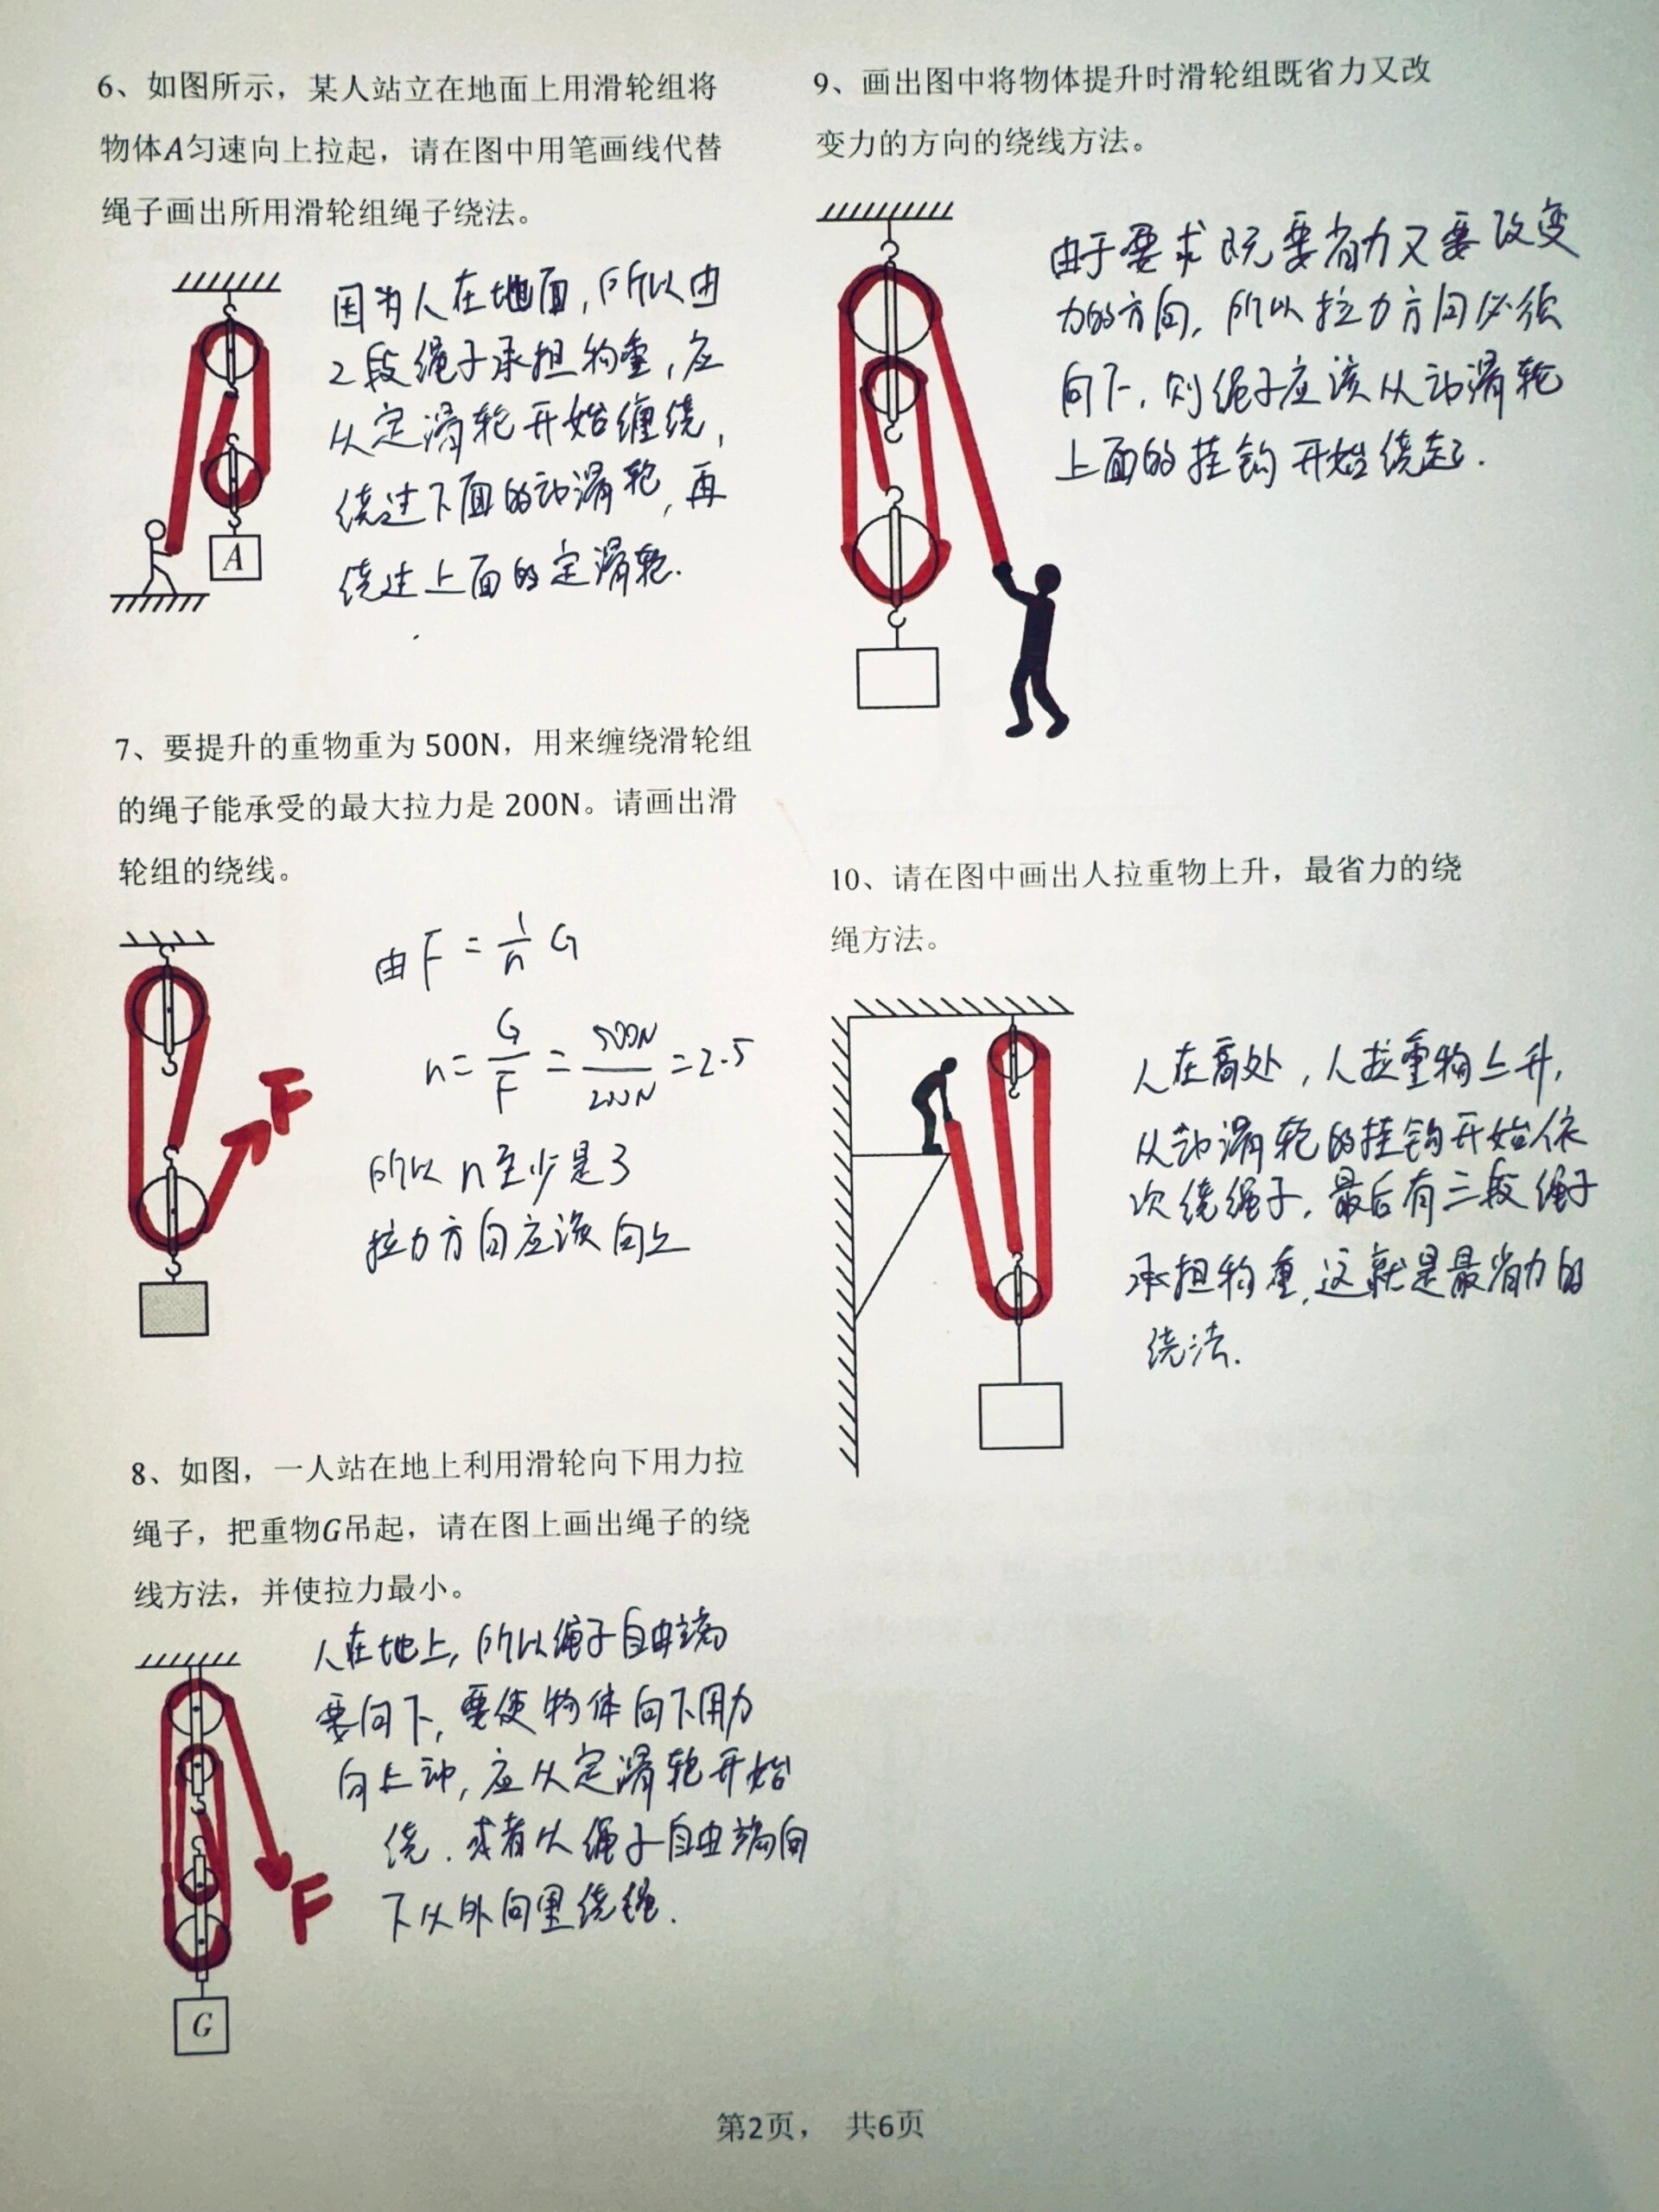 6、如图所示，某人站立在地面上用滑轮组将
物体A匀速向上拉起，请在图中用笔画线代替
绳子画出所用滑轮组绳子绕法。
因为人在地面，所以由
2段绳子承担物重，应
从定滑轮开始缠绕，
绕过下面的动滑轮，再
绕过上面的定滑轮.
A
7、要提升的重物重为 500N，用来缠绕滑轮组
的绳子能承受的最大拉力是 200N。请画出滑
轮组的绕线。
由F = 1/n G
n = G/F = 500N/200N = 2.5
所以 n至少是3
拉力方向应该向上
F
8、如图，一人站在地上利用滑轮向下用力拉
绳子，把重物G吊起，请在图上画出绳子的绕
线方法，并使拉力最小。
人在地上，所以绳子自由端
要向下，要使物体向下用力
向上动，应从定滑轮开始
绕．或者从绳子自由端向
下从外向里绕绳．
F
G
9、画出图中将物体提升时滑轮组既省力又改
变力的方向的绕线方法。
由于要求既要省力又要改变
力的方向，所以拉力方向必须
向下，则绳子应该从动滑轮
上面的挂钩开始绕起．
10、请在图中画出人拉重物上升，最省力的绕
绳方法。
人在高处，人拉重物上升，
从动滑轮的挂钩开始依
次绕绳子，最后有三段绳子
承担物重，这就是最省力的
绕法．
第2页， 共6页